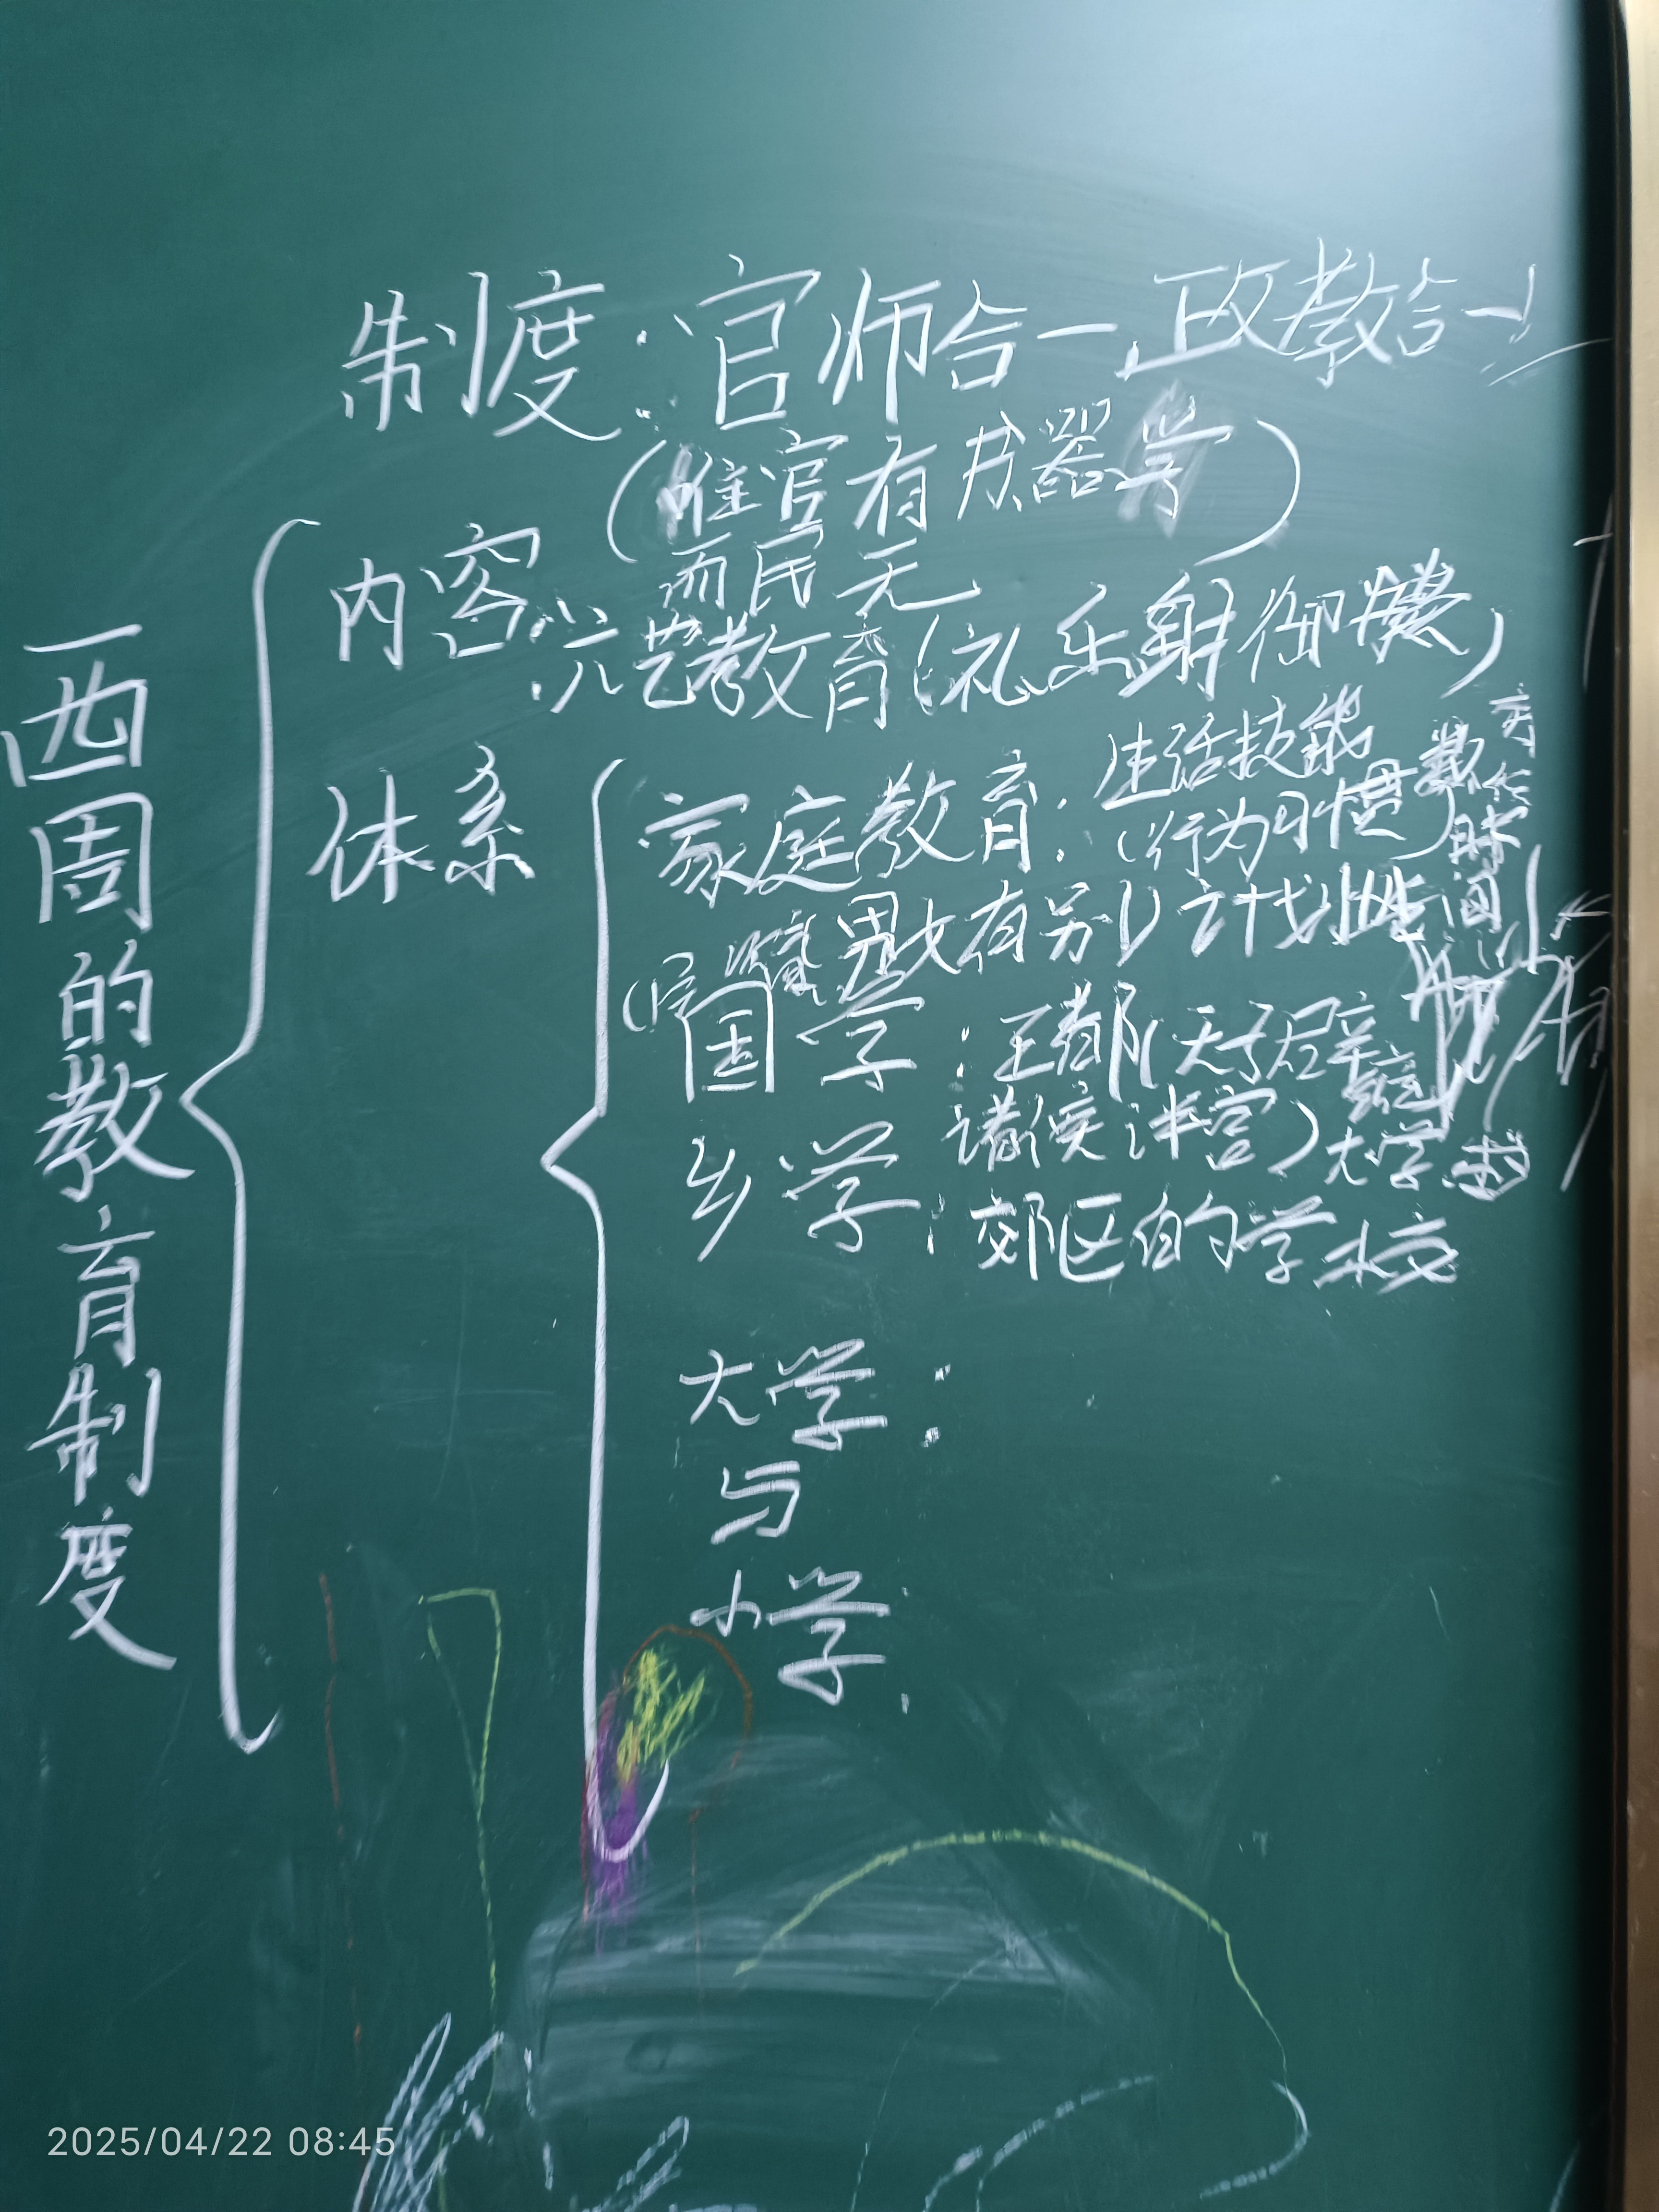 西周的教育制度
制度：官师合一，政教合一
（唯官有书器学
而民无）
内容：六艺教育（礼乐射御
体系
家庭教育：生活技能
（行为习惯）数
方
时间
男女有别）计划性
国学：王都（天子辟雍
诸侯泮宫）大学
乡学：郊区的学校
大学：
与
小学
2025/04/22 08:45